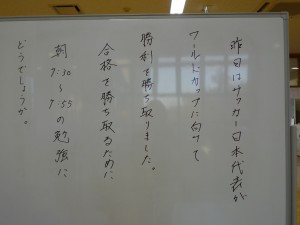 昨日はサッカー日本代表が
ワールドカップに向けて
勝利を勝ち取りました。
合格を勝ち取るために
朝7:30〜7:55の勉強に
どうでしょうか。